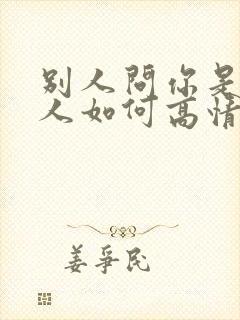 别人問你是
人如何高情
姜爭民